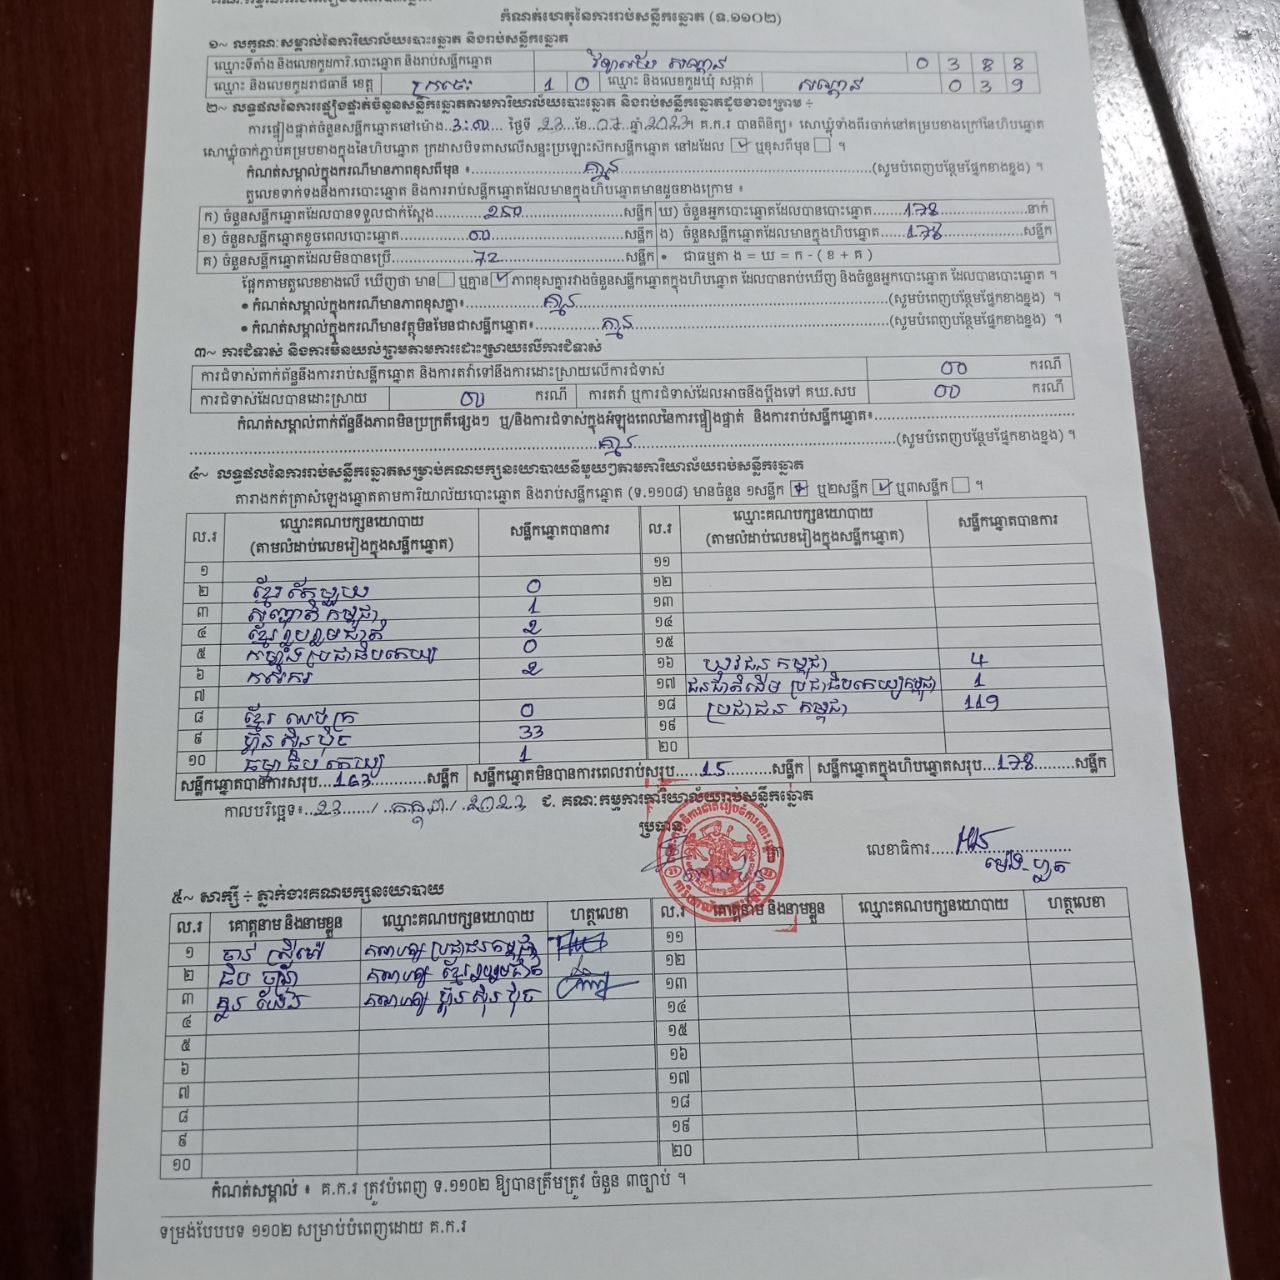 កំណត់ហេតុនៃការរាប់សន្លឹកឆ្នោត (ទ.១១០២)
១~ លក្ខណៈសម្គាល់នៃការិយាល័យបោះឆ្នោត និងរាប់សន្លឹកឆ្នោត
ឈ្មោះទីតាំង និងលេខកូដការិ.បោះឆ្នោត និងរាប់សន្លឹកឆ្នោត វិទ្យាល័យ សណ្តាន 0 3 8 8
ឈ្មោះ និងលេខកូដរាជធានី ខេត្ត ក្រចេះ 1 0 ឈ្មោះ និងលេខកូដឃុំ សង្កាត់ សណ្តាន 0 3 9
២~ លទ្ធផលនៃការផ្ទៀងផ្ទាត់ចំនួនសន្លឹកឆ្នោតតាមការិយាល័យបោះឆ្នោត និងរាប់សន្លឹកឆ្នោតដូចខាងក្រោម ÷
ការផ្ទៀងផ្ទាត់ចំនួនសន្លឹកឆ្នោតនៅម៉ោង 3:00 ថ្ងៃទី 23 ខែ 07 ឆ្នាំ 2023។ គ.ក.រ បានពិនិត្យ៖ សោឃ្លុំទាំងពីរចាក់នៅគម្របខាងក្រៅនៃហិបឆ្នោត
សោឃ្លុំចាក់ភ្ជាប់គម្របខាងក្នុងនៃហិបឆ្នោត ក្រដាសបិទពាសលើសន្ទះប្រឡោះសិកសន្លឹកឆ្នោត នៅដដែល ☑ ឬខុសពីមុន ☐ ។
កំណត់សម្គាល់ក្នុងករណីមានភាពខុសពីមុន ៖ គ្មាន (សូមបំពេញបន្ថែមផ្នែកខាងខ្នង) ។
តួលេខទាក់ទងនឹងការបោះឆ្នោត និងការរាប់សន្លឹកឆ្នោតដែលមានក្នុងហិបឆ្នោតមានដូចខាងក្រោម ៖
ក) ចំនួនសន្លឹកឆ្នោតដែលបានទទួលជាក់ស្តែង 250 សន្លឹក ឃ) ចំនួនអ្នកបោះឆ្នោតដែលបានបោះឆ្នោត 178 នាក់
ខ) ចំនួនសន្លឹកឆ្នោតខូចពេលបោះឆ្នោត 00 សន្លឹក ង) ចំនួនសន្លឹកឆ្នោតដែលមានក្នុងហិបឆ្នោត 178 សន្លឹក
គ) ចំនួនសន្លឹកឆ្នោតដែលមិនបានប្រើ 72 សន្លឹក • ជាធម្មតា ង = ឃ = ក - ( ខ + គ )
ផ្អែកតាមតួលេខខាងលើ ឃើញថា មាន ☐ ឬគ្មាន ☑ ភាពខុសគ្នារវាងចំនួនសន្លឹកឆ្នោតក្នុងហិបឆ្នោត ដែលបានរាប់ឃើញ និងចំនួនអ្នកបោះឆ្នោត ដែលបានបោះឆ្នោត ។
• កំណត់សម្គាល់ក្នុងករណីមានភាពខុសគ្នា៖ គ្មាន (សូមបំពេញបន្ថែមផ្នែកខាងខ្នង) ។
• កំណត់សម្គាល់ក្នុងករណីមានវត្ថុមិនមែនជាសន្លឹកឆ្នោត៖ គ្មាន (សូមបំពេញបន្ថែមផ្នែកខាងខ្នង) ។
៣~ ការជំទាស់ និងការមិនយល់ព្រមតាមការដោះស្រាយលើការជំទាស់
ការជំទាស់ពាក់ព័ន្ធនឹងការរាប់សន្លឹកឆ្នោត និងការតវ៉ាទៅនឹងការដោះស្រាយលើការជំទាស់ 00 ករណី
ការជំទាស់ដែលបានដោះស្រាយ 00 ករណី ការតវ៉ា ឬការជំទាស់ដែលអាចនឹងប្តឹងទៅ គឃ.សប 00 ករណី
កំណត់សម្គាល់ពាក់ព័ន្ធនឹងភាពមិនប្រក្រតីផ្សេងៗ ឬ/និងការជំទាស់ក្នុងអំឡុងពេលនៃការផ្ទៀងផ្ទាត់ និងការរាប់សន្លឹកឆ្នោត៖
គ្មាន (សូមបំពេញបន្ថែមផ្នែកខាងខ្នង) ។
៤~ លទ្ធផលនៃការរាប់សន្លឹកឆ្នោតសម្រាប់គណបក្សនយោបាយនីមួយៗតាមការិយាល័យរាប់សន្លឹកឆ្នោត
តារាងកត់ត្រាសំឡេងឆ្នោតតាមការិយាល័យបោះឆ្នោត និងរាប់សន្លឹកឆ្នោត (ទ.១១០៨) មានចំនួន ១សន្លឹក ឬ២សន្លឹក ☑ ឬ៣សន្លឹក ☐ ។
ល.រ ឈ្មោះគណបក្សនយោបាយ (តាមលំដាប់លេខរៀងក្នុងសន្លឹកឆ្នោត) សន្លឹកឆ្នោតបានការ ល.រ ឈ្មោះគណបក្សនយោបាយ (តាមលំដាប់លេខរៀងក្នុងសន្លឹកឆ្នោត) សន្លឹកឆ្នោតបានការ
១ ១១
២ ខ្មែរតែមួយ 0 ១២
៣ សញ្ជាតិកម្ពុជា 1 ១៣
៤ ខ្មែររួបរួមជាតិ 2 ១៤
៥ កម្លាំងប្រជាធិបតេយ្យ 0 ១៥
៦ កសិករ 2 ១៦ យុវជនកម្ពុជា 4
៧ ១៧ ជនជាតិដើមប្រជាធិបតេយ្យកម្ពុជា 1
៨ ខ្មែរ 0 ១៨ ប្រជាជនកម្ពុជា 119
៩ ហ៊្វុនស៊ិនប៉ិច 33 ១៩
១០ ធម្មាធិបតេយ្យ 1 ២០
សន្លឹកឆ្នោតបានការសរុប 163 សន្លឹក សន្លឹកឆ្នោតមិនបានការពេលរាប់សរុប 15 សន្លឹក សន្លឹកឆ្នោតក្នុងហិបឆ្នោតសរុប 178 សន្លឹក
កាលបរិច្ឆេទ៖ 23 / កក្កដា / 2023 ជ. គណៈកម្មការការិយាល័យរាប់សន្លឹកឆ្នោត
ប្រធាន
លេខាធិការ
៥~ សាក្សី ÷ ភ្នាក់ងារគណបក្សនយោបាយ
ល.រ គោត្តនាម និងនាមខ្លួន ឈ្មោះគណបក្សនយោបាយ ហត្ថលេខា ល.រ គោត្តនាម និងនាមខ្លួន ឈ្មោះគណបក្សនយោបាយ ហត្ថលេខា
១ គណបក្សប្រជាជនកម្ពុជា ១១
២ គណបក្សខ្មែររួបរួមជាតិ ១២
៣ គណបក្សហ៊្វុនស៊ិនប៉ិច ១៣
៤ ១៤
៥ ១៥
៦ ១៦
៧ ១៧
៨ ១៨
៩ ១៩
១០ ២០
កំណត់សម្គាល់ ៖ គ.ក.រ ត្រូវបំពេញ ទ.១១០២ ឱ្យបានត្រឹមត្រូវ ចំនួន ៣ច្បាប់ ។
ទម្រង់បែបបទ ១១០២ សម្រាប់បំពេញដោយ គ.ក.រ